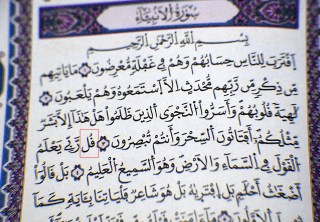 سُورَةُ الْأَنبِيَاءِ
بِسْمِ اللَّهِ الرَّحْمَٰنِ الرَّحِيمِ
اِقْتَرَبَ لِلنَّاسِ حِسَابُهُمْ وَهُمْ فِي غَفْلَةٍ مُّعْرِضُونَ مَا يَاتِيهِم
مِّن ذِكْرٍ مِّن رَّبِّهِم مُّحْدَثٍ إِلَّا اَسْتَمَعُوهُ وَهُمْ يَلْعَبُونَ
لَٰهِيَةً قُلُوبُهُمْ وَأَسَرُّوا النَّجْوَى الَّذِينَ ظَلَمُوا هَلْ هَٰذَا إِلَّا بَشَرٌ
مِّثْلُكُمْ أَفَتَاتُونَ السِّحْرَ وَأَنتُمْ تُبْصِرُونَ قُل رَّبِّي يَعْلَمُ
الْقَوْلَ فِي السَّمَاءِ وَالْأَرْضِ وَهُوَ السَّمِيعُ الْعَلِيمُ بَلْ قَالُوا
أَضْغَٰثُ أَحْلَٰمٍ بَلِ افْتَرَىٰهُ بَلْ هُوَ شَاعِرٌ فَلْيَاتِنَا بِـَٔايَةٍ كَمَا